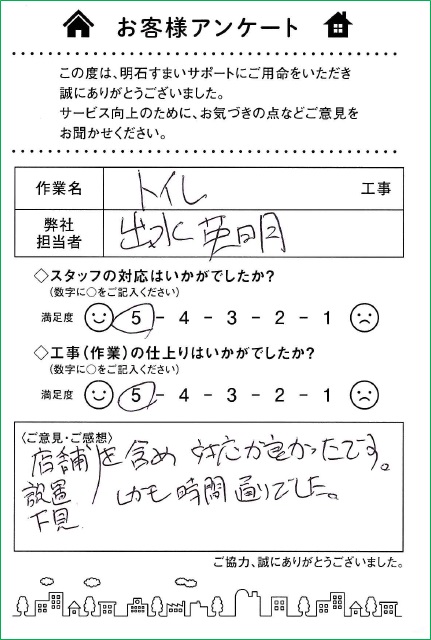 お客様アンケート
この度は、明石すまいサポートにご用命をいただき
誠にありがとうございました。
サービス向上のために、お気づきの点などご意見を
お聞かせください。
作業名 トイレ 工事
弊社
担当者 出水 英明
◇スタッフの対応はいかがでしたか?
(数字に○をご記入ください)
満足度 5 - 4 - 3 - 2 - 1
◇工事(作業)の仕上りはいかがでしたか?
(数字に○をご記入ください)
満足度 5 - 4 - 3 - 2 - 1
〈ご意見・ご感想〉
店舗を含め 対応が良かったです。
設置 しかも時間通りでした。
下見
ご協力、誠にありがとうございました。